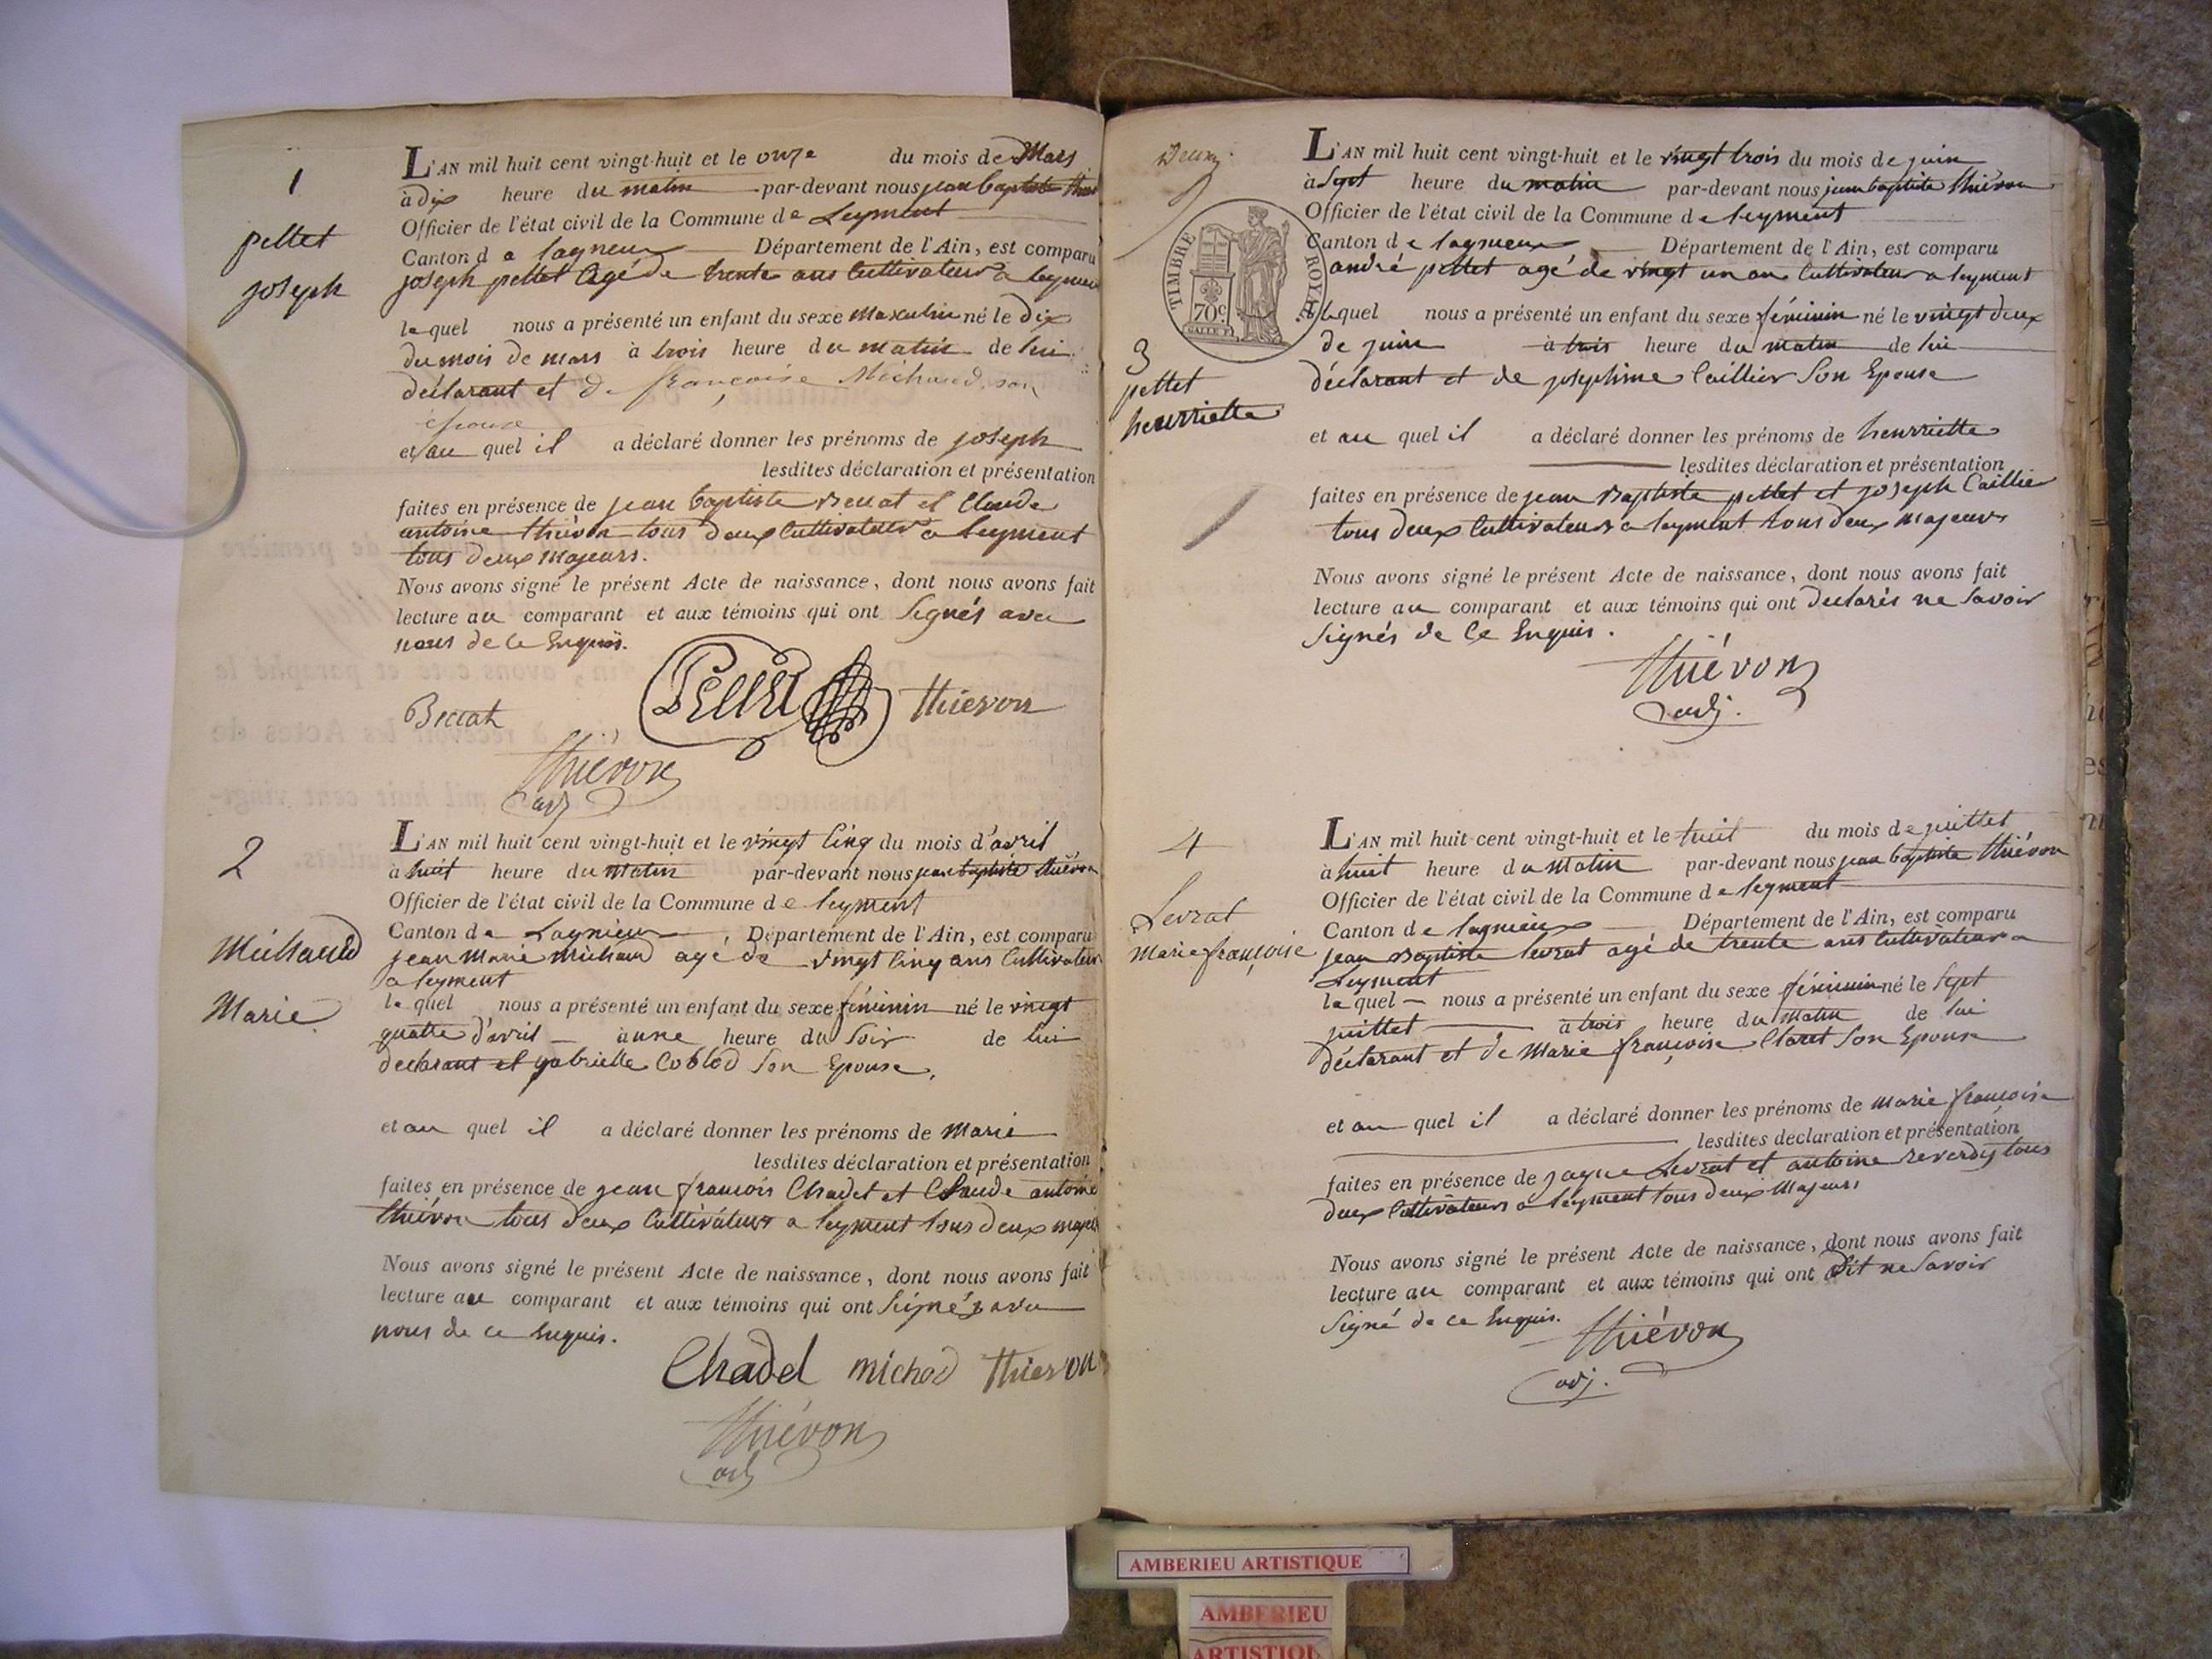 1
pellet
joseph
L'AN mil huit cent vingt-huit et le onze du mois de Mars
à dix heure du matin par-devant nous jean baptiste
Officier de l'état civil de la Commune de Leyment
Canton de lagneux Département de l'Ain, est comparu
joseph pellet agé de trente ans Cultivateur a leyment
lequel nous a présenté un enfant du sexe masculin né le dix
du mois de mars à trois heure du matin de lui
déclarant et de françoise Michaud, son
épouse
et au quel il a déclaré donner les prénoms de joseph
lesdites déclaration et présentation
faites en présence de jean baptiste et Claude
antoine thiévon tous deux Cultivateurs a leyment
tous deux majeurs.
Nous avons signé le présent Acte de naissance, dont nous avons fait
lecture au comparant et aux témoins qui ont Signés avec
nous de ce Enquis.
Pellet thievon
Thiévon
adj
2
Michaud
Marie
L'AN mil huit cent vingt-huit et le vingt Cinq du mois d'avril
à huit heure du matin par-devant nous jean baptiste thiévon
Officier de l'état civil de la Commune de leyment
Canton de Lagnieux Département de l'Ain, est comparu
jean Marie Michaud agé de vingt Cinq ans Cultivateur
a leyment
lequel nous a présenté un enfant du sexe féminin né le vingt
quatre d'avril à une heure du Soir de lui
déclarant et gabrielle Coblod Son Epouse,
et au quel il a déclaré donner les prénoms de Marie
lesdites déclaration et présentation
faites en présence de jean françois Chadet et Claude antoine
thiévon tous deux Cultivateurs a leyment tous deux
Nous avons signé le présent Acte de naissance, dont nous avons fait
lecture au comparant et aux témoins qui ont Signés avec
nous de ce Enquis.
Chadel michod thievon
Thiévon
adj
Deux
TIMBRE ROYAL
70c
3
pellet
henrriette
L'AN mil huit cent vingt-huit et le vingt trois du mois de juin
à Sept heure du matin par-devant nous jean baptiste thiévon
Officier de l'état civil de la Commune de leyment
Canton de lagnieux Département de l'Ain, est comparu
andré pellet agé de vingt un an Cultivateur a leyment
lequel nous a présenté un enfant du sexe féminin né le vingt deux
de juin à trois heure du matin de lui
déclarant et de josephine Caillier Son Epouse
et au quel il a déclaré donner les prénoms de henrriette
lesdites déclaration et présentation
faites en présence de jean Baptiste pellet et joseph Caillier
tous deux Cultivateurs a leyment tous deux majeurs
Nous avons signé le présent Acte de naissance, dont nous avons fait
lecture au comparant et aux témoins qui ont declarés ne Savoir
Signés de Ce Enquis.
Thiévon
adj.
4
Levrat
Marie françoise
L'AN mil huit cent vingt-huit et le huit du mois de juillet
à huit heure du Matin par-devant nous jean baptiste thiévon
Officier de l'état civil de la Commune de leyment
Canton de lagnieux Département de l'Ain, est comparu
jean Baptiste levrat agé de trente ans Cultivateur a
Leyment
lequel nous a présenté un enfant du sexe féminin né le Sept
juillet à trois heure du Matin de lui
déclarant et de Marie françoise Claret Son Epouse
et au quel il a déclaré donner les prénoms de marie françoise
lesdites déclaration et présentation
faites en présence de jaque Levrat et antoine reverdy tous
deux Cultivateurs a leyment tous deux Majeurs
Nous avons signé le présent Acte de naissance, dont nous avons fait
lecture au comparant et aux témoins qui ont dit ne Savoir
Signé de ce Enquis.
Thiévon
adj.
AMBERIEU ARTISTIQUE
AMBERIEU
ARTISTIQU